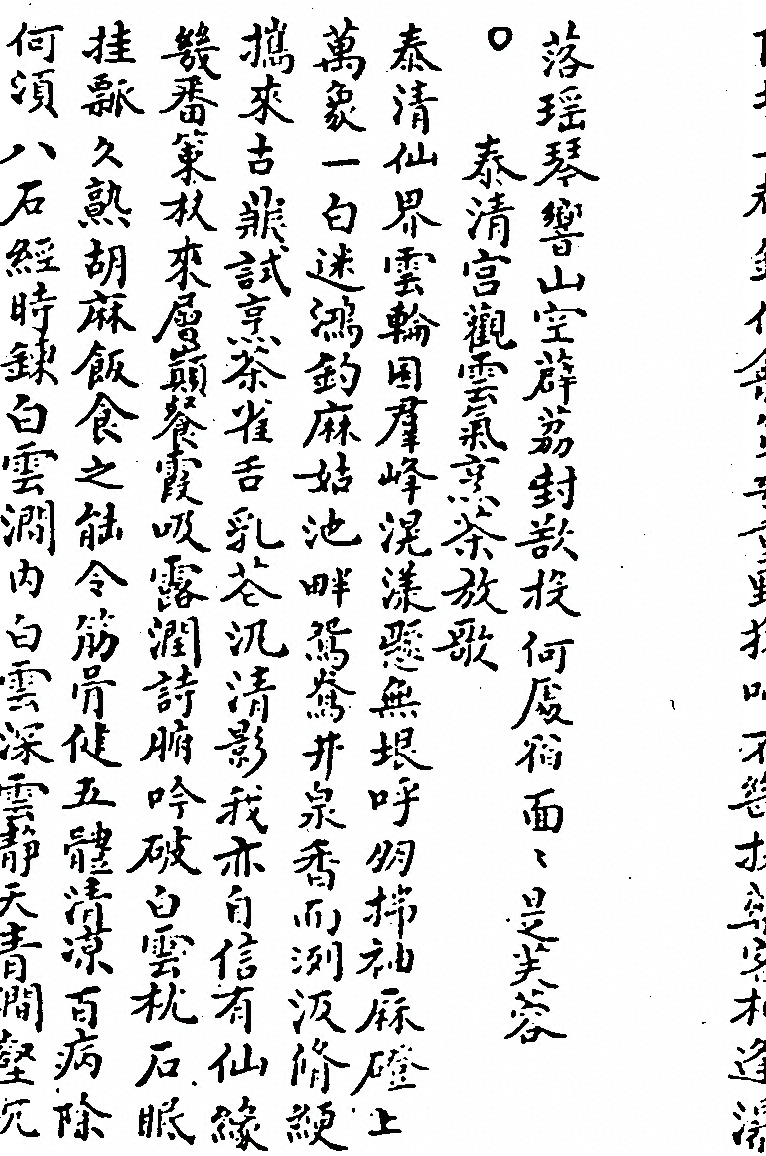 落瑶琴響山空薜荔封猿投何處宿面〻是芙蓉
○
泰清宮觀雲氣烹茶放歌
泰清仙界雲輪囷羣峰滉漾懸無垠呼朋拂袖麻磴上
萬象一白迷鴻鈞麻姑池畔鴛鴦井泉香而洌汲脩綆
攜來古鼎試烹茶雀舌乳花汎清影我亦自信有仙緣
幾番策杖來層巔餐霞吸露潤詩腑吟破白雲枕石眠
挂瓢久熟胡麻飯食之能令筋骨健五體清涼百病除
何須八石經時鍊白雲澗内白雲深雲靜天青澗壑冗